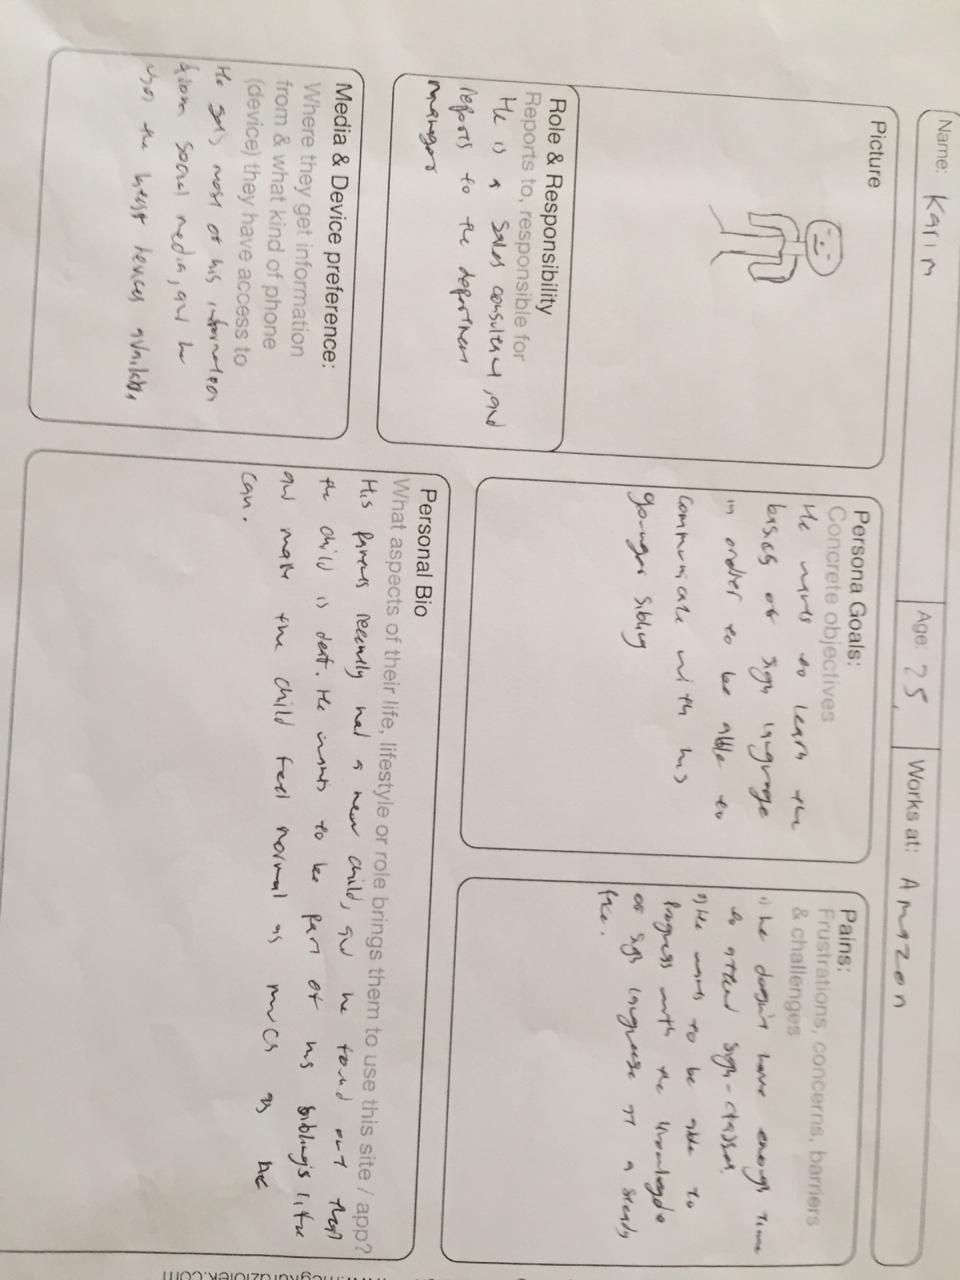 Name: Karim
Age: 25
Works at: Amazon
Picture
Role & Responsibility
Reports to, responsible for
He is a sales consultant, and
reports to the department
manager
Media & Device preference:
Where they get information
from & what kind of phone
(device) they have access to
He gets most of his information
from social media, and he
the available.
Persona Goals:
Concrete objectives
He wants to learn the
basics of sign language
in order to be able to
communicate with his
younger sibling
Pains:
Frustrations, concerns, barriers
& challenges
1) he doesn't have enough time
to attend sign-classes.
2) He wants to be able to
progress with the knowledge
of sign language at a steady
Personal Bio
What aspects of their life, lifestyle or role brings them to use this site / app?
His parents recently had a new child, and he found out that
the child is deaf. He wants to be part of his sibling's life
and make the child feel normal as much as he
can.